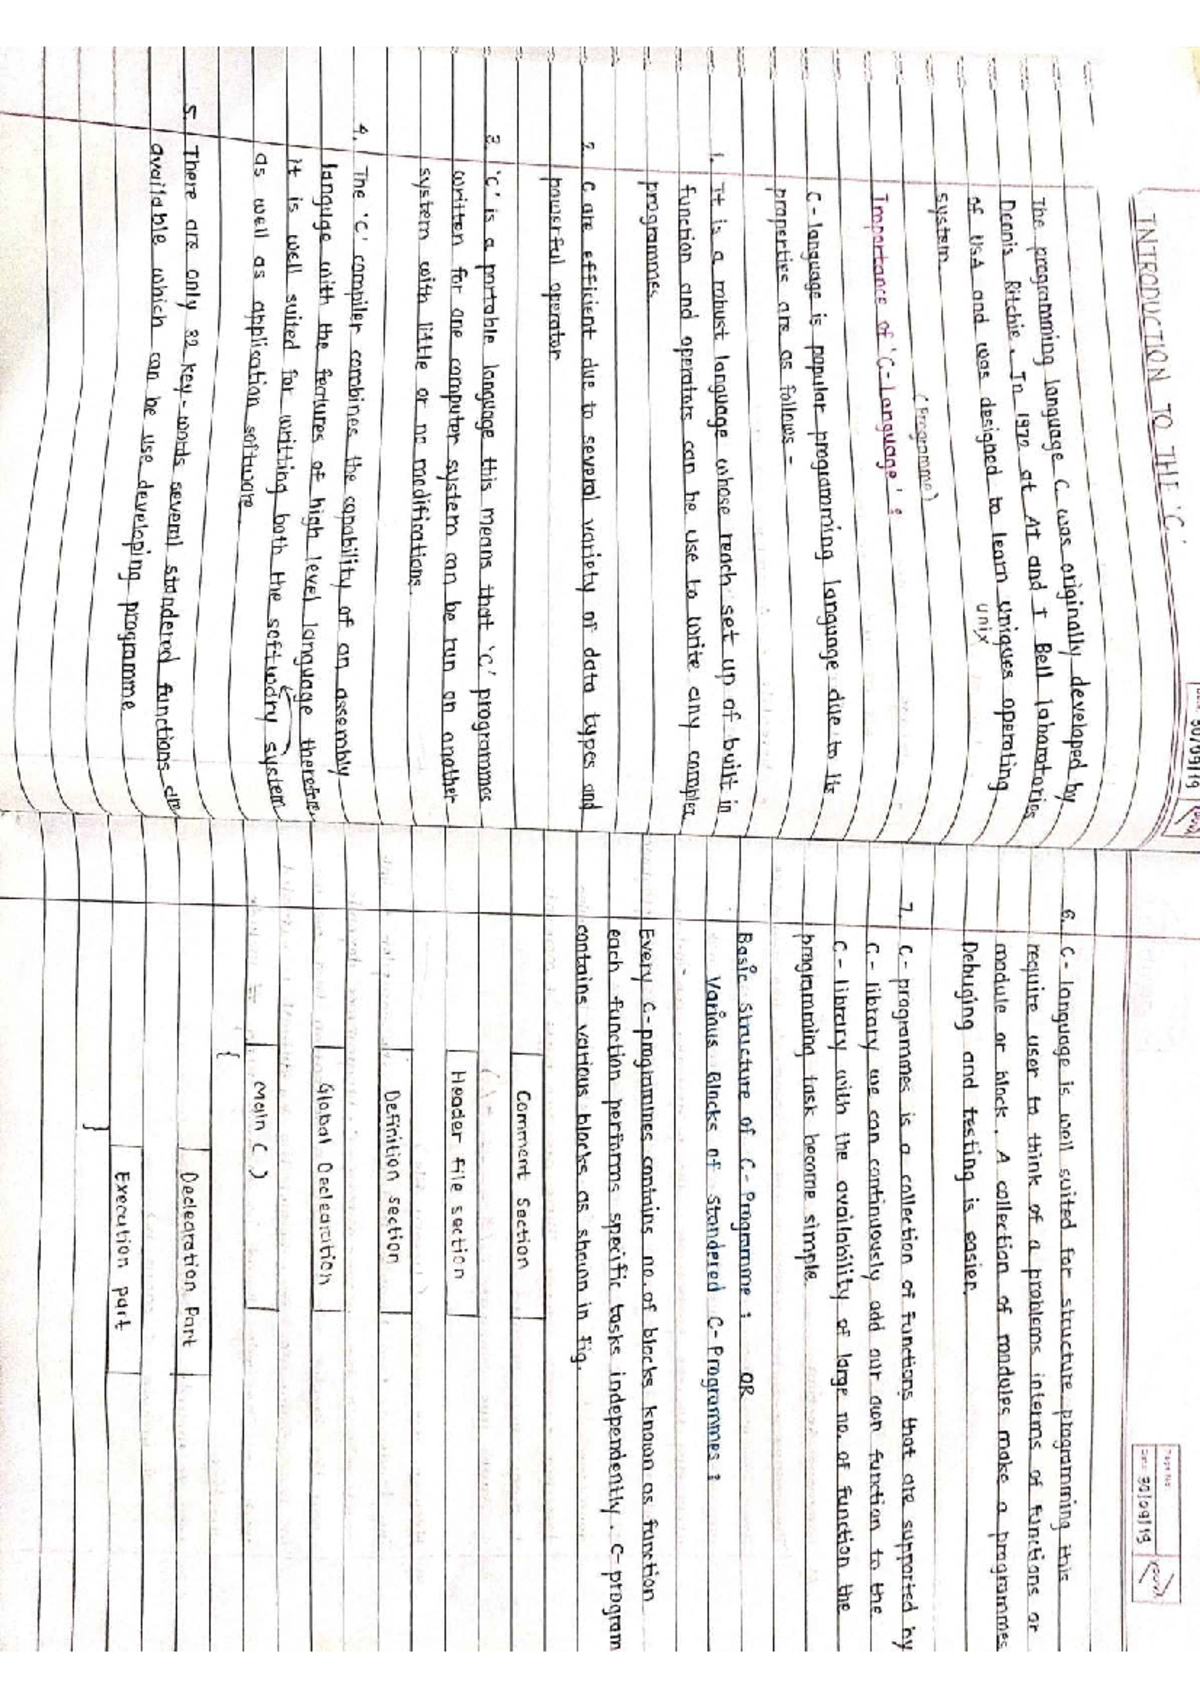 30/09/19
INTRODUCTION TO THE 'C'
The programming language C was originally developed by
Dennis Ritchie. In 1972 at At and T Bell labaratories
of USA and was designed to learn uniques operating
unix
system
(Programme)
Importance of 'C-Language' :
C-language is popular programming language due to its
properties are as follows -
1. It is a robust language whose reach set up of built in
function and operators can be use to write any complex
programmes
2. C are efficient due to several variety of data types and
powerful operator
3. 'C' is a portable language this means that 'C' programmes
written for one computer system can be run on another
system with little or no modifications.
4. The 'C' compiler combines the capability of an assembly
language with the features of high level language therefore
it is well suited for writting both the system
as well as application software
5. There are only 32 key-words several standered functions are
available which can be use developing programme
Page No:
Date: 30/09/19
6. C-language is well suited for structure programming this
require user to think of a problems interms of functions or
module or block. A collection of modules make a programmes
Debuging and testing is easier.
7. C-programmes is a collection of functions that are supported by
C-library we can continuously add our own function to the
C-library with the availability of large no. of function the
programming task become simple.
Basic structure of C-Programme : OR
Various Blocks of Standered C-Programmes :
Every C-programmes contains no. of blocks known as function
each function performs specific tasks independently. C-program
contains various blocks as shown in fig.
Comment Section
Header file section
Definition section
Global Declearation
Main ( )
{
Declearation Part
Execution part
}